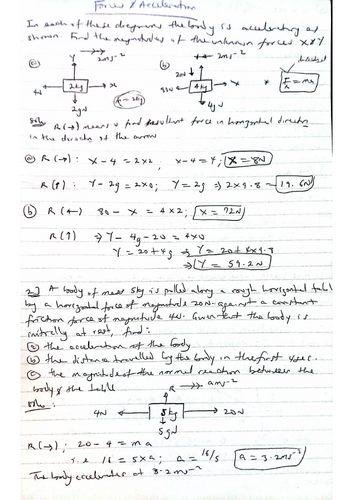 Forces & Acceleration
In each of these diagrams the body is accelerating as
shown. Find the magnitudes of the unknown forces X & Y
(a) Y 2ms⁻² (b) 2ms⁻²
4N 2kg X 2gN
20N 80N 4kg X Y 4gN
F = ma
Soln R(→) means u find resultant force in horizontal direction
in the direction of the arrow
(a) R(→): X - 4 = 2×2, X-4 = 4, X = 8N
R(↑) Y - 2g = 2×0, Y = 2g ⇒ 2×9.8 = 19.6N
(b) R(←) 80 - X = 4×2; X = 72N
R(↑) ⇒ Y - 4g - 20 = 4×0
Y = 20 + 4g ⇒ Y = 20 + 4×9.8
⇒ Y = 59.2N
2) A body of mass 5kg is pulled along a rough horizontal table
by a horizontal force of magnitude 20N against a constant
friction force of magnitude 4N. Given that the body is
initially at rest, find:
(a) the acceleration of the body
(b) the distance travelled by the body in the first 4 sec.
(c) the magnitude of the normal reaction between the
body & the table
Soln: R → ams⁻²
4N ← 5kg → 20N
5gN
R(→): 20 - 4 = ma
i.e 16 = 5×a; a = 16/5 a = 3.2ms⁻²
The body accelerates at 3.2ms⁻²